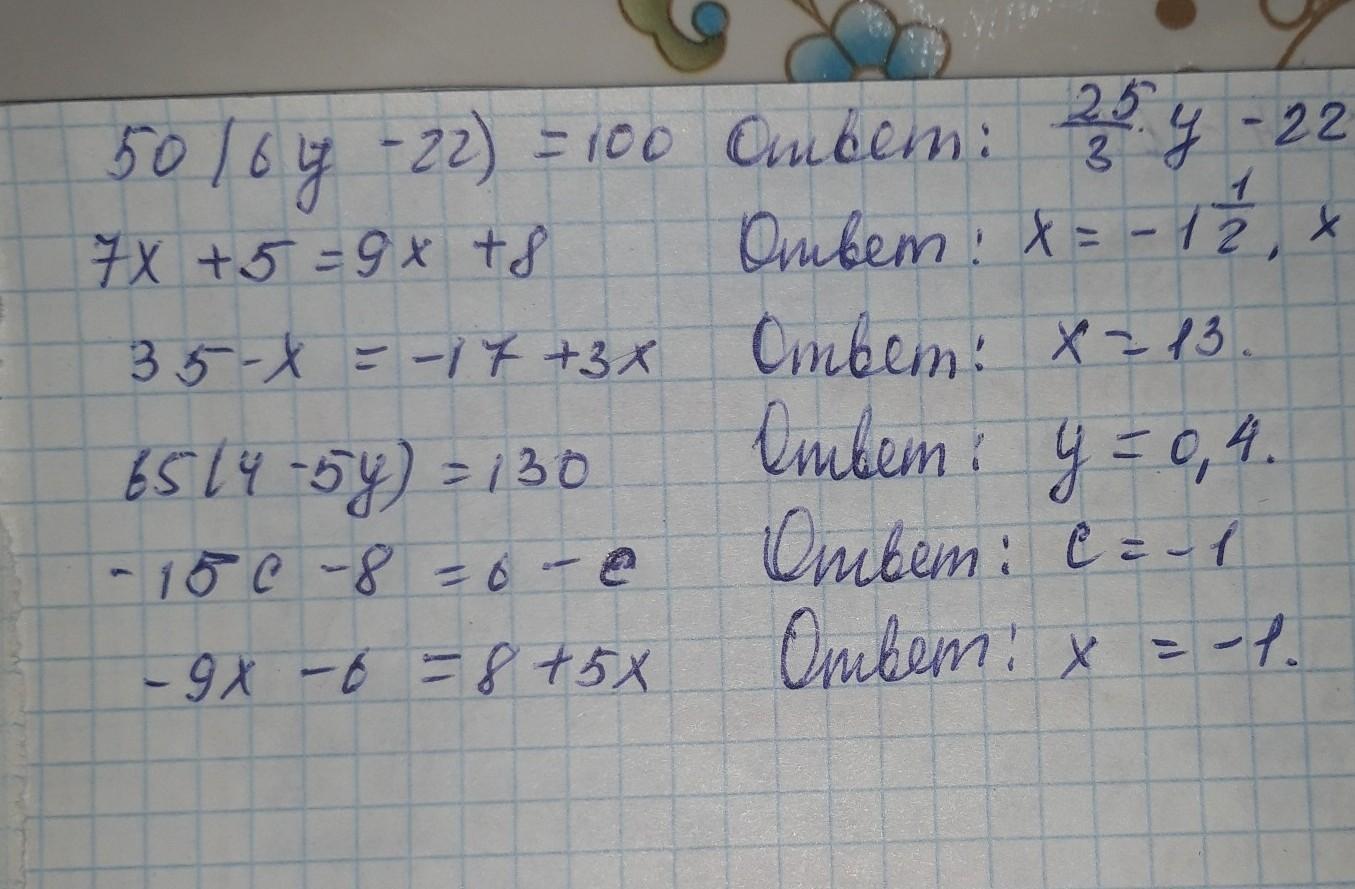 50(6y - 22) = 100 Ответ: 25/3 · y - 22
7x + 5 = 9x + 8 Ответ: x = -1 1/2, x
35 - x = -17 + 3x Ответ: x = 13.
65(4 - 5y) = 130 Ответ: y = 0,4.
-15c - 8 = 6 - c Ответ: c = -1
-9x - 6 = 8 + 5x Ответ: x = -1.